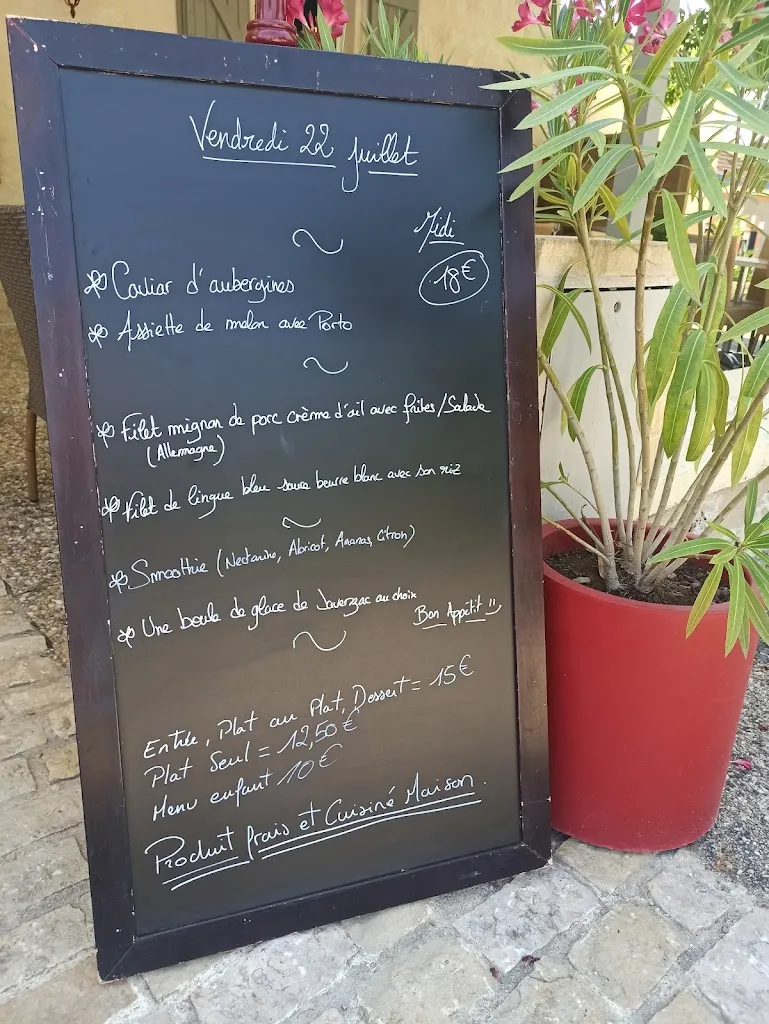 Vendredi 22 juillet
Midi
18€
Caviar d'aubergines
Assiette de melon avec Porto
Filet mignon de porc crème d'ail avec frites/Salade
(Allemagne)
Filet de lingue bleu sauce beurre blanc avec son riz
Smoothie (Nectarine, Abricot, Ananas, Citron)
Une boule de glace de Javerzac au choix
Bon Appétit !!
Entrée, Plat ou Plat, Dessert = 15€
Plat Seul = 12,50€
Menu enfant 10€
Produit frais et Cuisiné Maison.